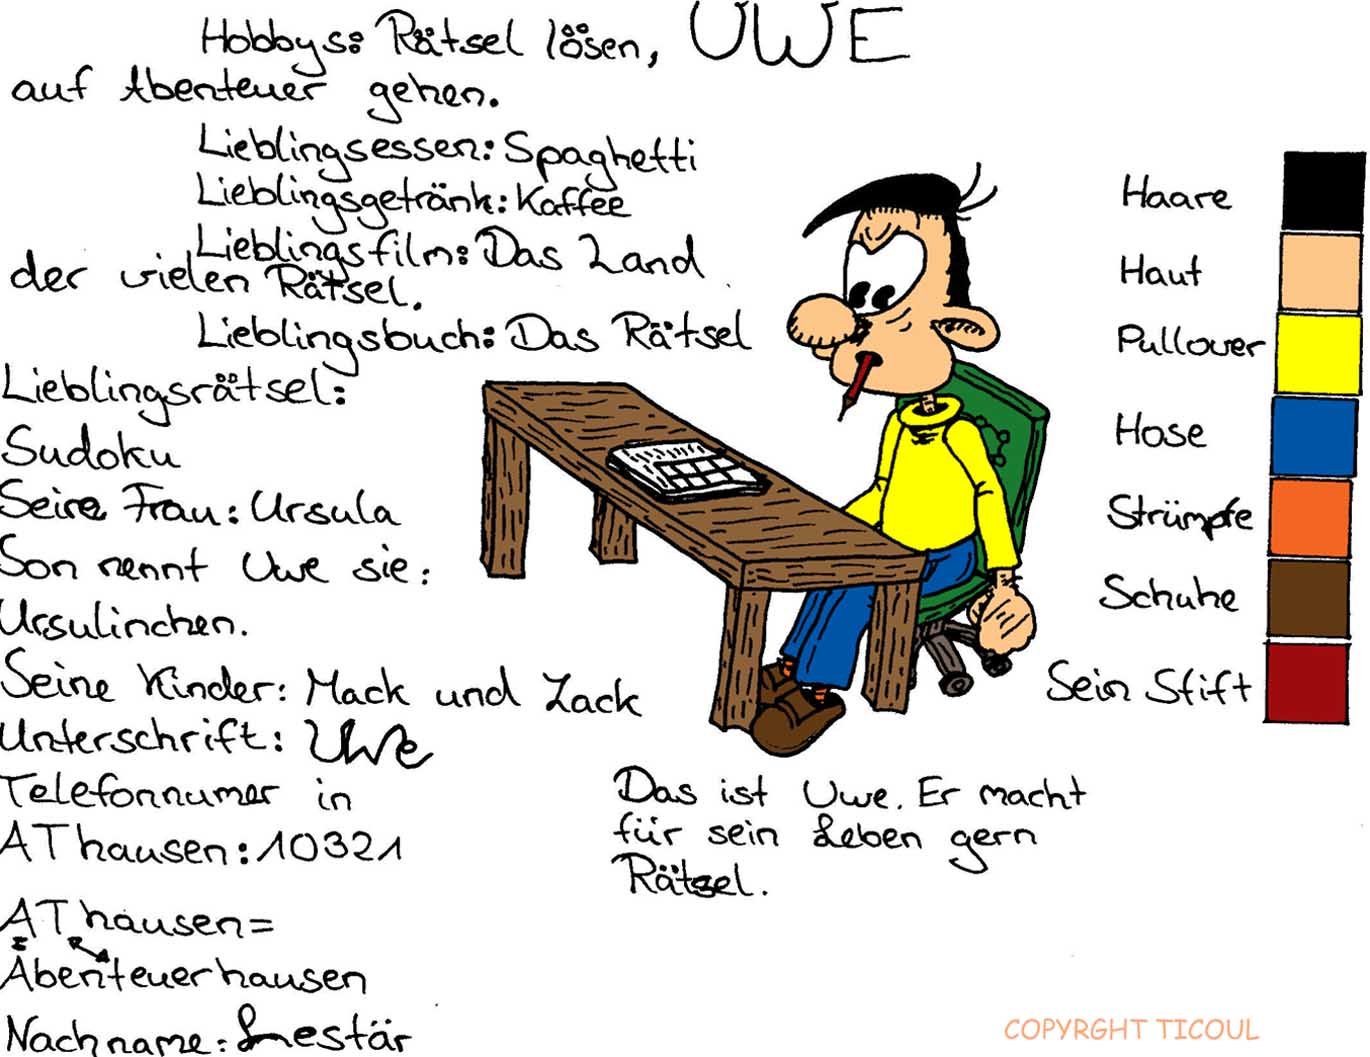 UWE
Hobbys: Rätsel lösen,
auf Abenteuer gehen.
Lieblingsessen: Spaghetti
Lieblingsgetränk: Kaffee
Lieblingsfilm: Das Land
der vielen Rätsel.
Lieblingsbuch: Das Rätsel
Lieblingsrätsel:
Sudoku
Seine Frau: Ursula
Son nennt Uwe sie:
Ursulinchen.
Seine Kinder: Mack und Zack
Unterschrift: Uwe
Telefonnumer in
AThausen: 10321
AThausen=
Abenteuerhausen
Nachname: Lestär
Das ist Uwe. Er macht
für sein Leben gern
Rätsel.
Haare
Haut
Pullover
Hose
Strümpfe
Schuhe
Sein Stift
COPYRGHT TICOUL